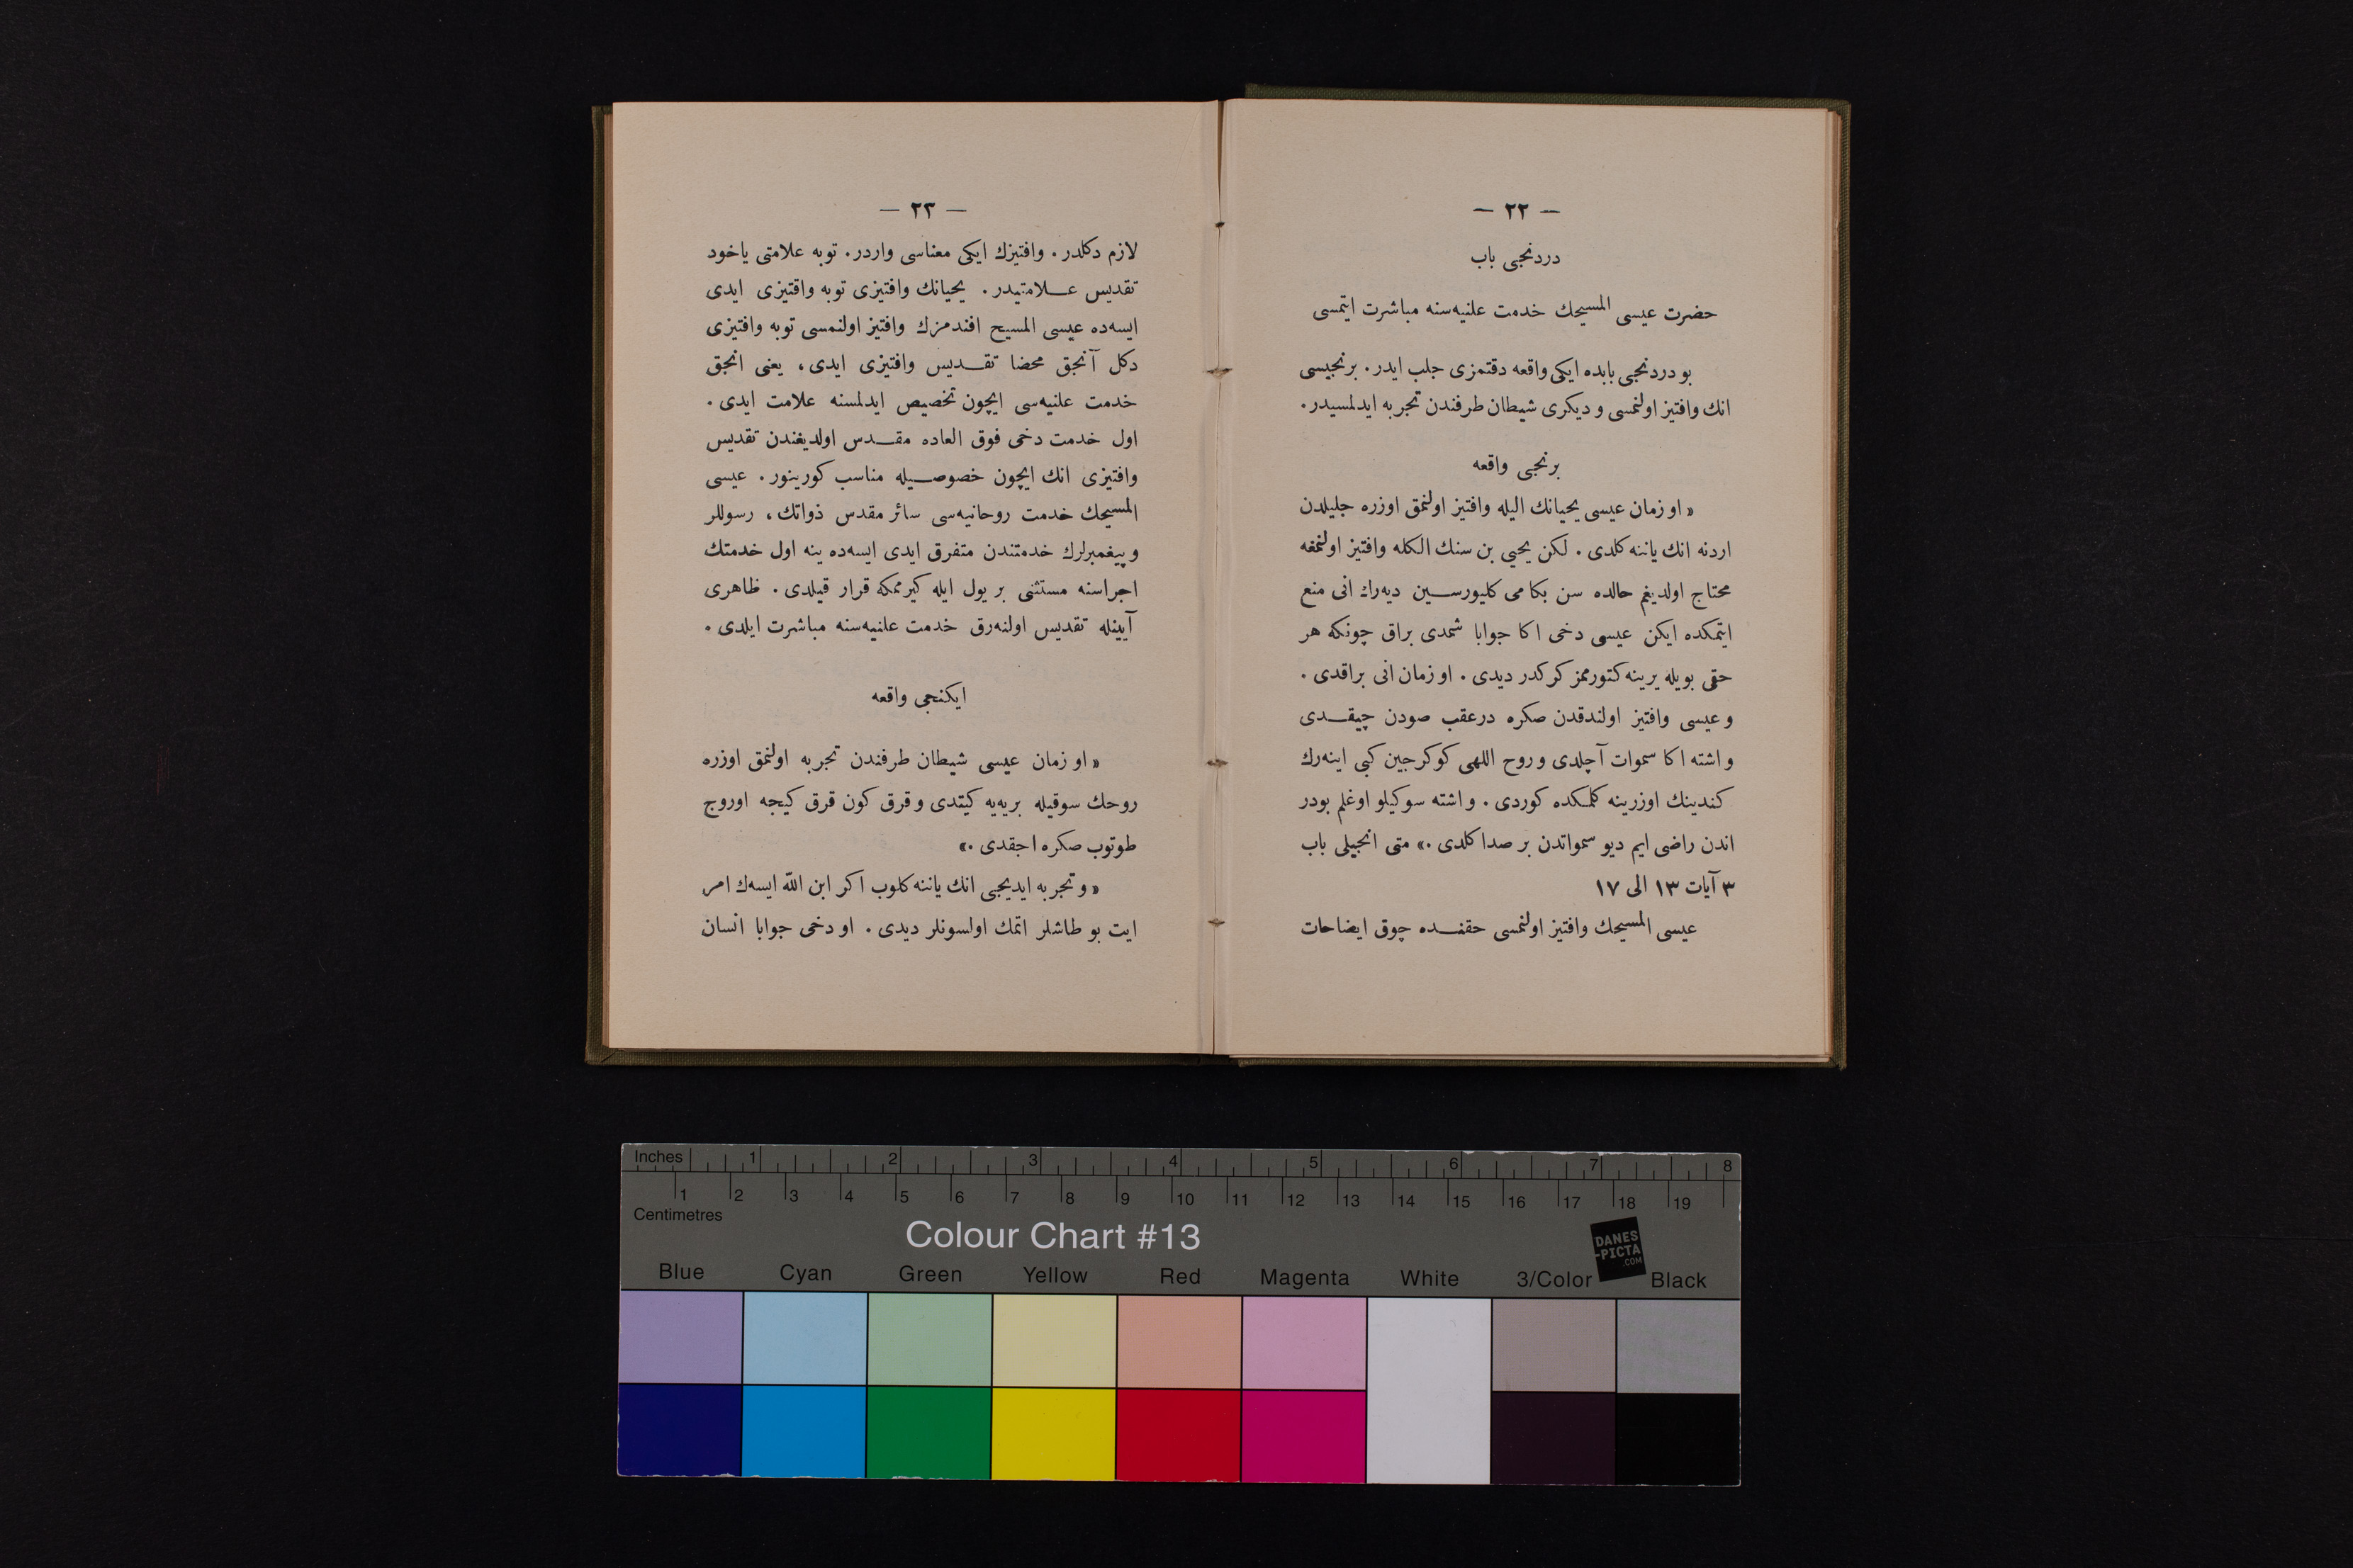 — ٢٢ —
دردنجی باب
حضرت عیسی المسیحك خدمت علنیه‌سنه مباشرت ایتمسی
بو دردنجی بابده ایكی واقعه دقتمزی جلب ایدر. برنجیسی
انك وافتیز اولنمسی و دیكری شیطان طرفندن تجربه ایدلمسیدر.
برنجی واقعه
« او زمان عیسی یحیانك الیله وافتیز اولنمق اوزره جلیلدن
اردنه انك یاننه كلدی. لكن یحیی بن سنك الكله وافتیز اولنمغه
محتاج اولدیغم حالده سن بكا می كلیورسین دیه‌رك انی منع
ایتمكده ایكن عیسی دخی اكا جوابا شمدی براق چونكه هر
حقی بویله یرینه كتورممز كركدر دیدی. او زمان انی براقدی.
و عیسی وافتیز اولندقدن صكره درعقب صودن چیقدی
و اشته اكا سموات آچلدی و روح اللهی كوكرجین كبی اینه‌رك
كندینك اوزرینه كلمكده كوردی. و اشته سوكیلو اوغلم بودر
اندن راضی ایم دیو سمواتدن بر صدا كلدی.» متی انجیلی باب
٣ آیات ١٣ الی ١٧
عیسی المسیحك وافتیز اولنمسی حقنده چوق ایضاحات
— ٢٣ —
لازم دكلدر. وافتیزك ایكی معناسی واردر. توبه علامتی یاخود
تقدیس علامتیدر. یحیانك وافتیزی توبه وافتیزی ایدی
ایسه‌ده عیسی المسیح افندمزك وافتیز اولنمسی توبه وافتیزی
دكل آنجق محضا تقدیس وافتیزی ایدی، یعنی انجق
خدمت علنیه‌سی ایچون تخصیص ایدلمسنه علامت ایدی.
اول خدمت دخی فوق العاده مقدس اولدیغندن تقدیس
وافتیزی انك ایچون خصوصیله مناسب كورینور. عیسی
المسیحك خدمت روحانیه‌سی سائر مقدس ذواتك، رسوللر
و پیغمبرلرك خدمتندن متفرق ایدی ایسه‌ده ینه اول خدمتك
اجراسنه مستثنی بر یول ایله كیرممكه قرار قیلدی. ظاهری
آیینله تقدیس اولنه‌رق خدمت علنیه‌سنه مباشرت ایلدی.
ایكنجی واقعه
« او زمان عیسی شیطان طرفندن تجربه اولنمق اوزره
روحك سوقیله بریه‌یه كیتدی و قرق كون قرق كیجه اوروج
طوتوب صكره اجقدی.»
« و تجربه ایدیجی انك یاننه كلوب اكر ابن الله ایسه‌ك امر
ایت بو طاشلر اتمك اولسونلر دیدی. او دخی جوابا انسان
Inches 1 2 3 4 5 6 7 8
1 2 3 4 5 6 7 8 9 10 11 12 13 14 15 16 17 18 19
Centimetres
Colour Chart #13
DANES
-PICTA
.COM
Blue Cyan Green Yellow Red Magenta White 3/Color Black